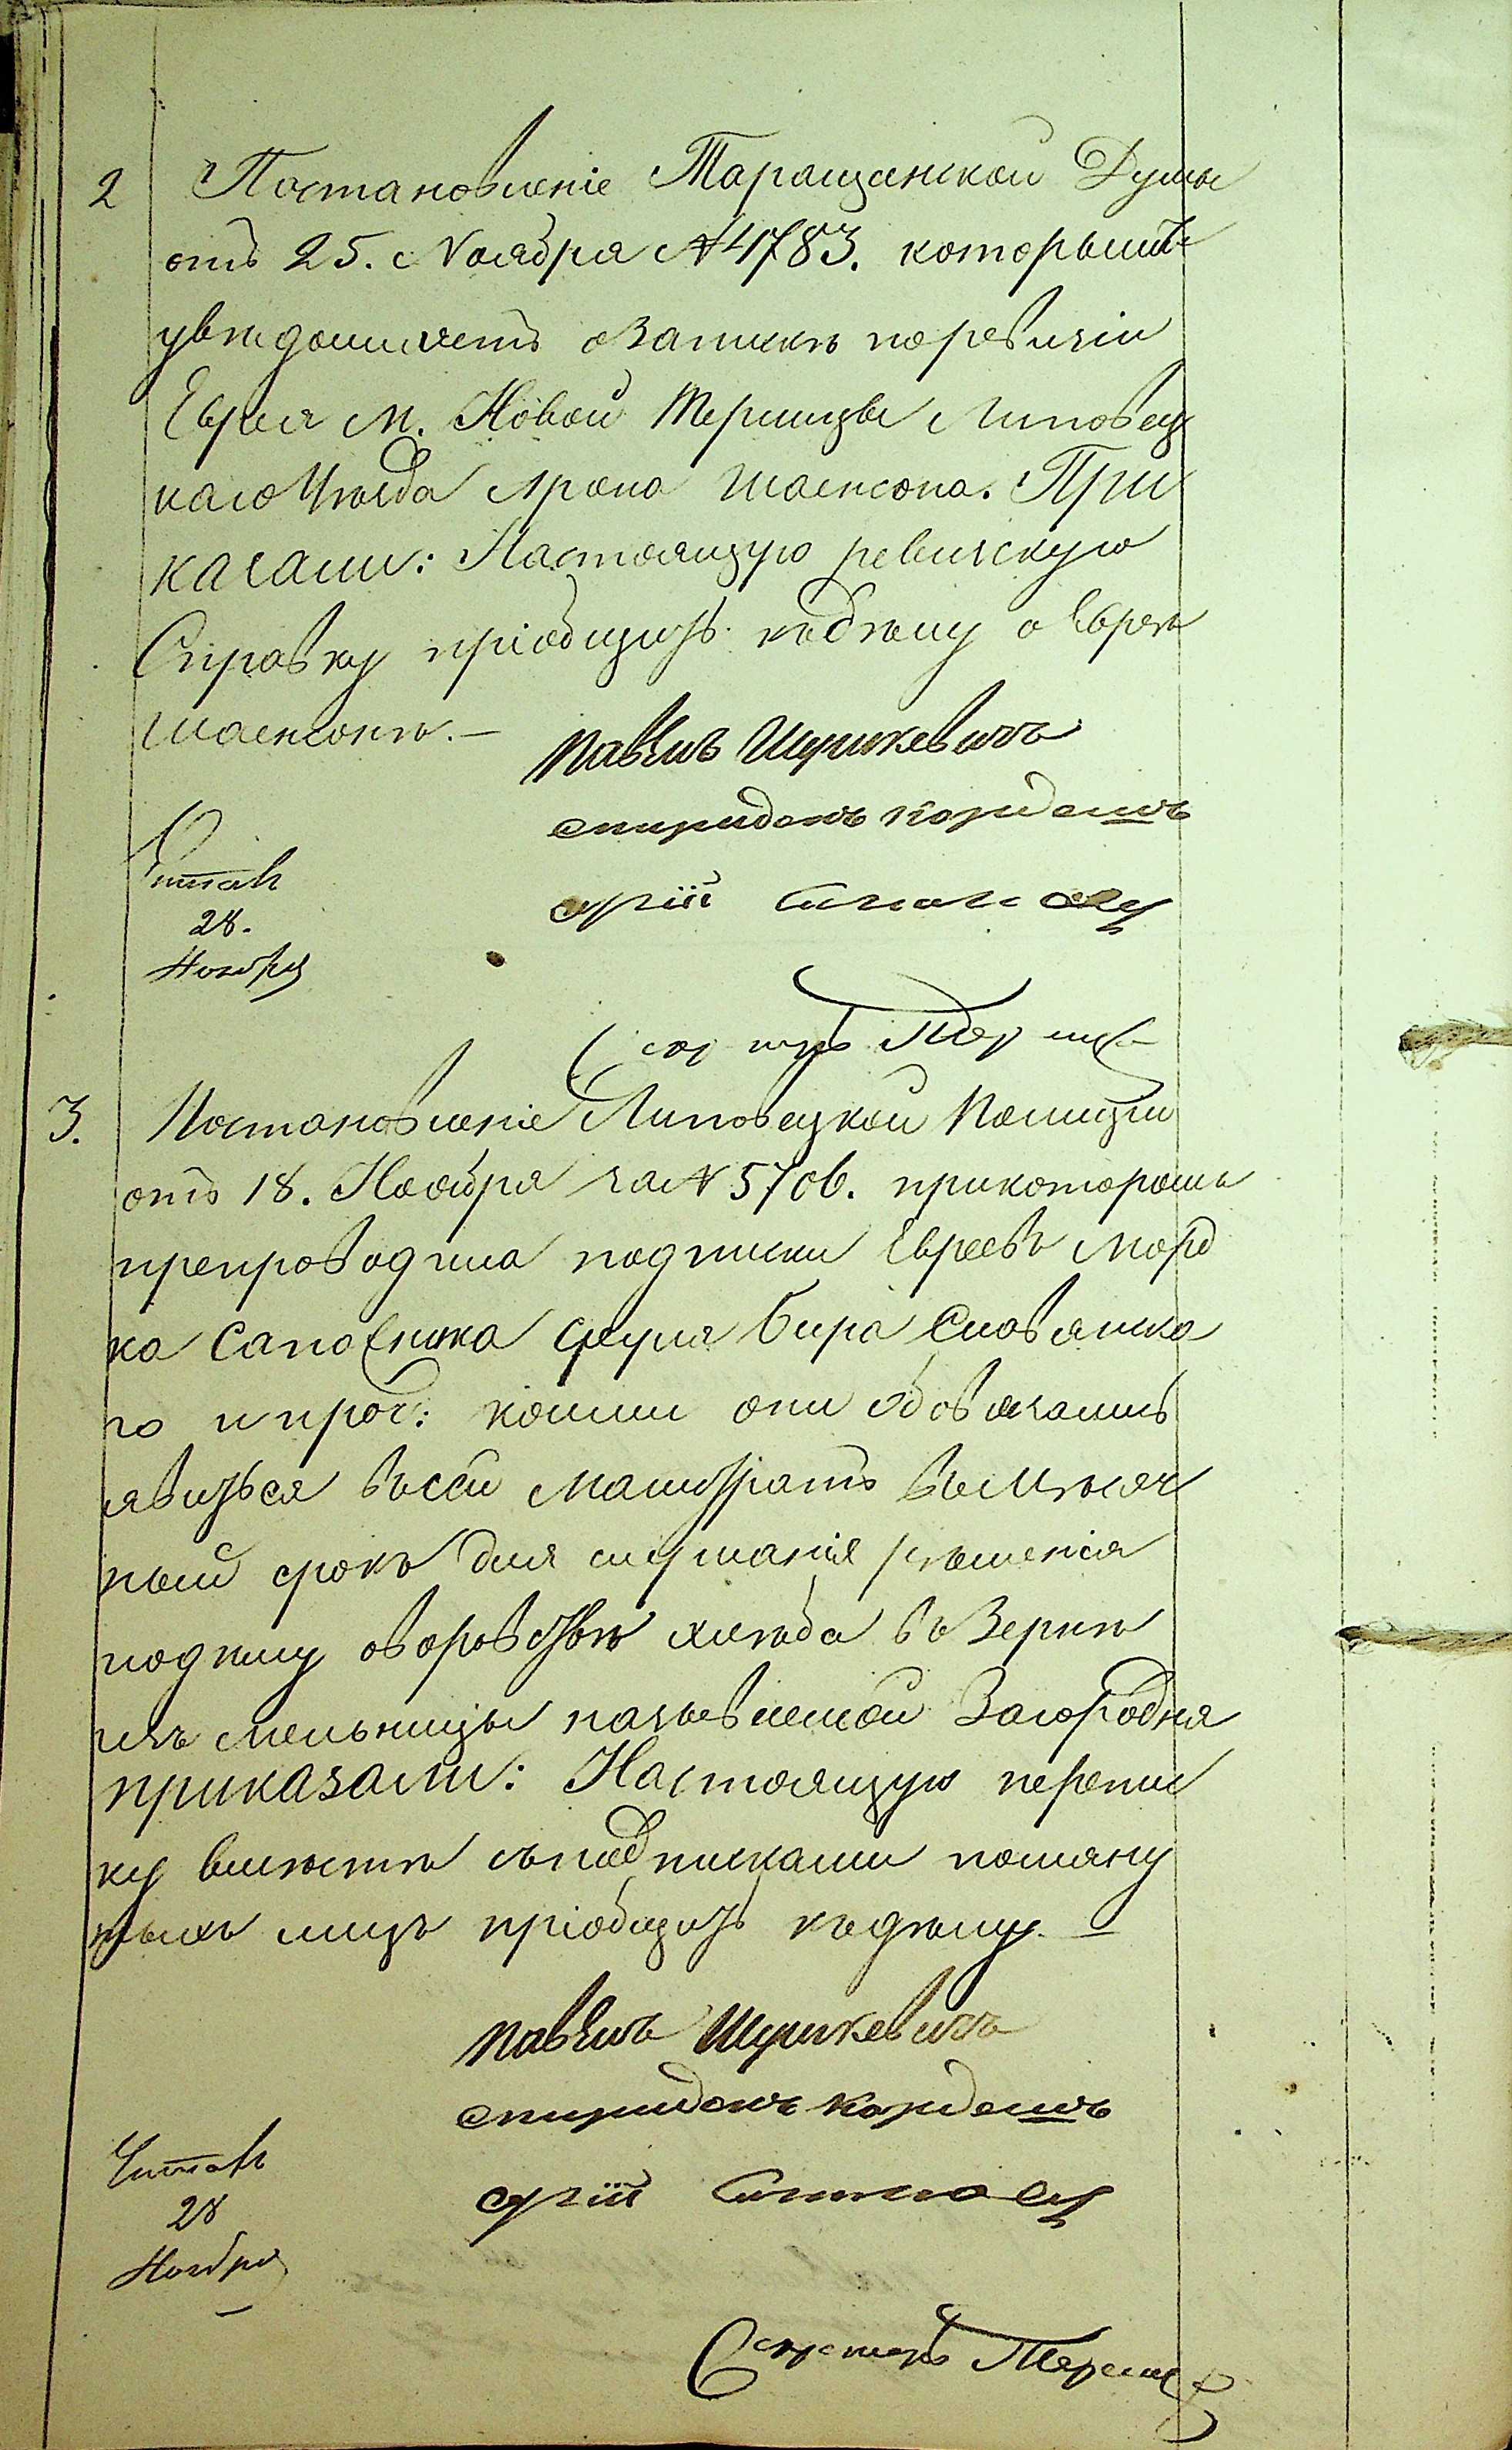 2 Постановленіе Таращанской Думы
отъ 25. Ноября № 4783. которымъ
увѣдомляетъ о запискѣ по ревизіи
Еврея м. Новой Гребли Липовец
каго Уѣзда Арона Шаенсона. При
казали: Настоящую ревизскую
Справку пріобщить къ дѣлу о Евреѣ
Шаенсонѣ. —
Павелъ Шушкевичъ
Спиридонъ
Читалъ
28.
Ноября
Секретарь
3. Постановленіе Липовецкой Полиціи
отъ 18. Ноября за № 5706. при которомъ
препроводила подписки Евреевъ Морд
ка Сапожника Сруля Бира Словянска
го и проч: коими они обовязались
явиться въ сей Магистратъ въ мѣсяч
ный срокъ для слушанія рѣшенія
по дѣлу о воровствѣ хлѣба въ Зернѣ
изъ мельницы называемой Загородня
приказали: Настоящую перепис
ку вмѣстѣ съ подписками помяну
тыхъ лицъ пріобщить къ дѣлу. —
Павелъ Шушкевичъ
Спиридонъ
Читалъ
28
Ноября
Секретарь